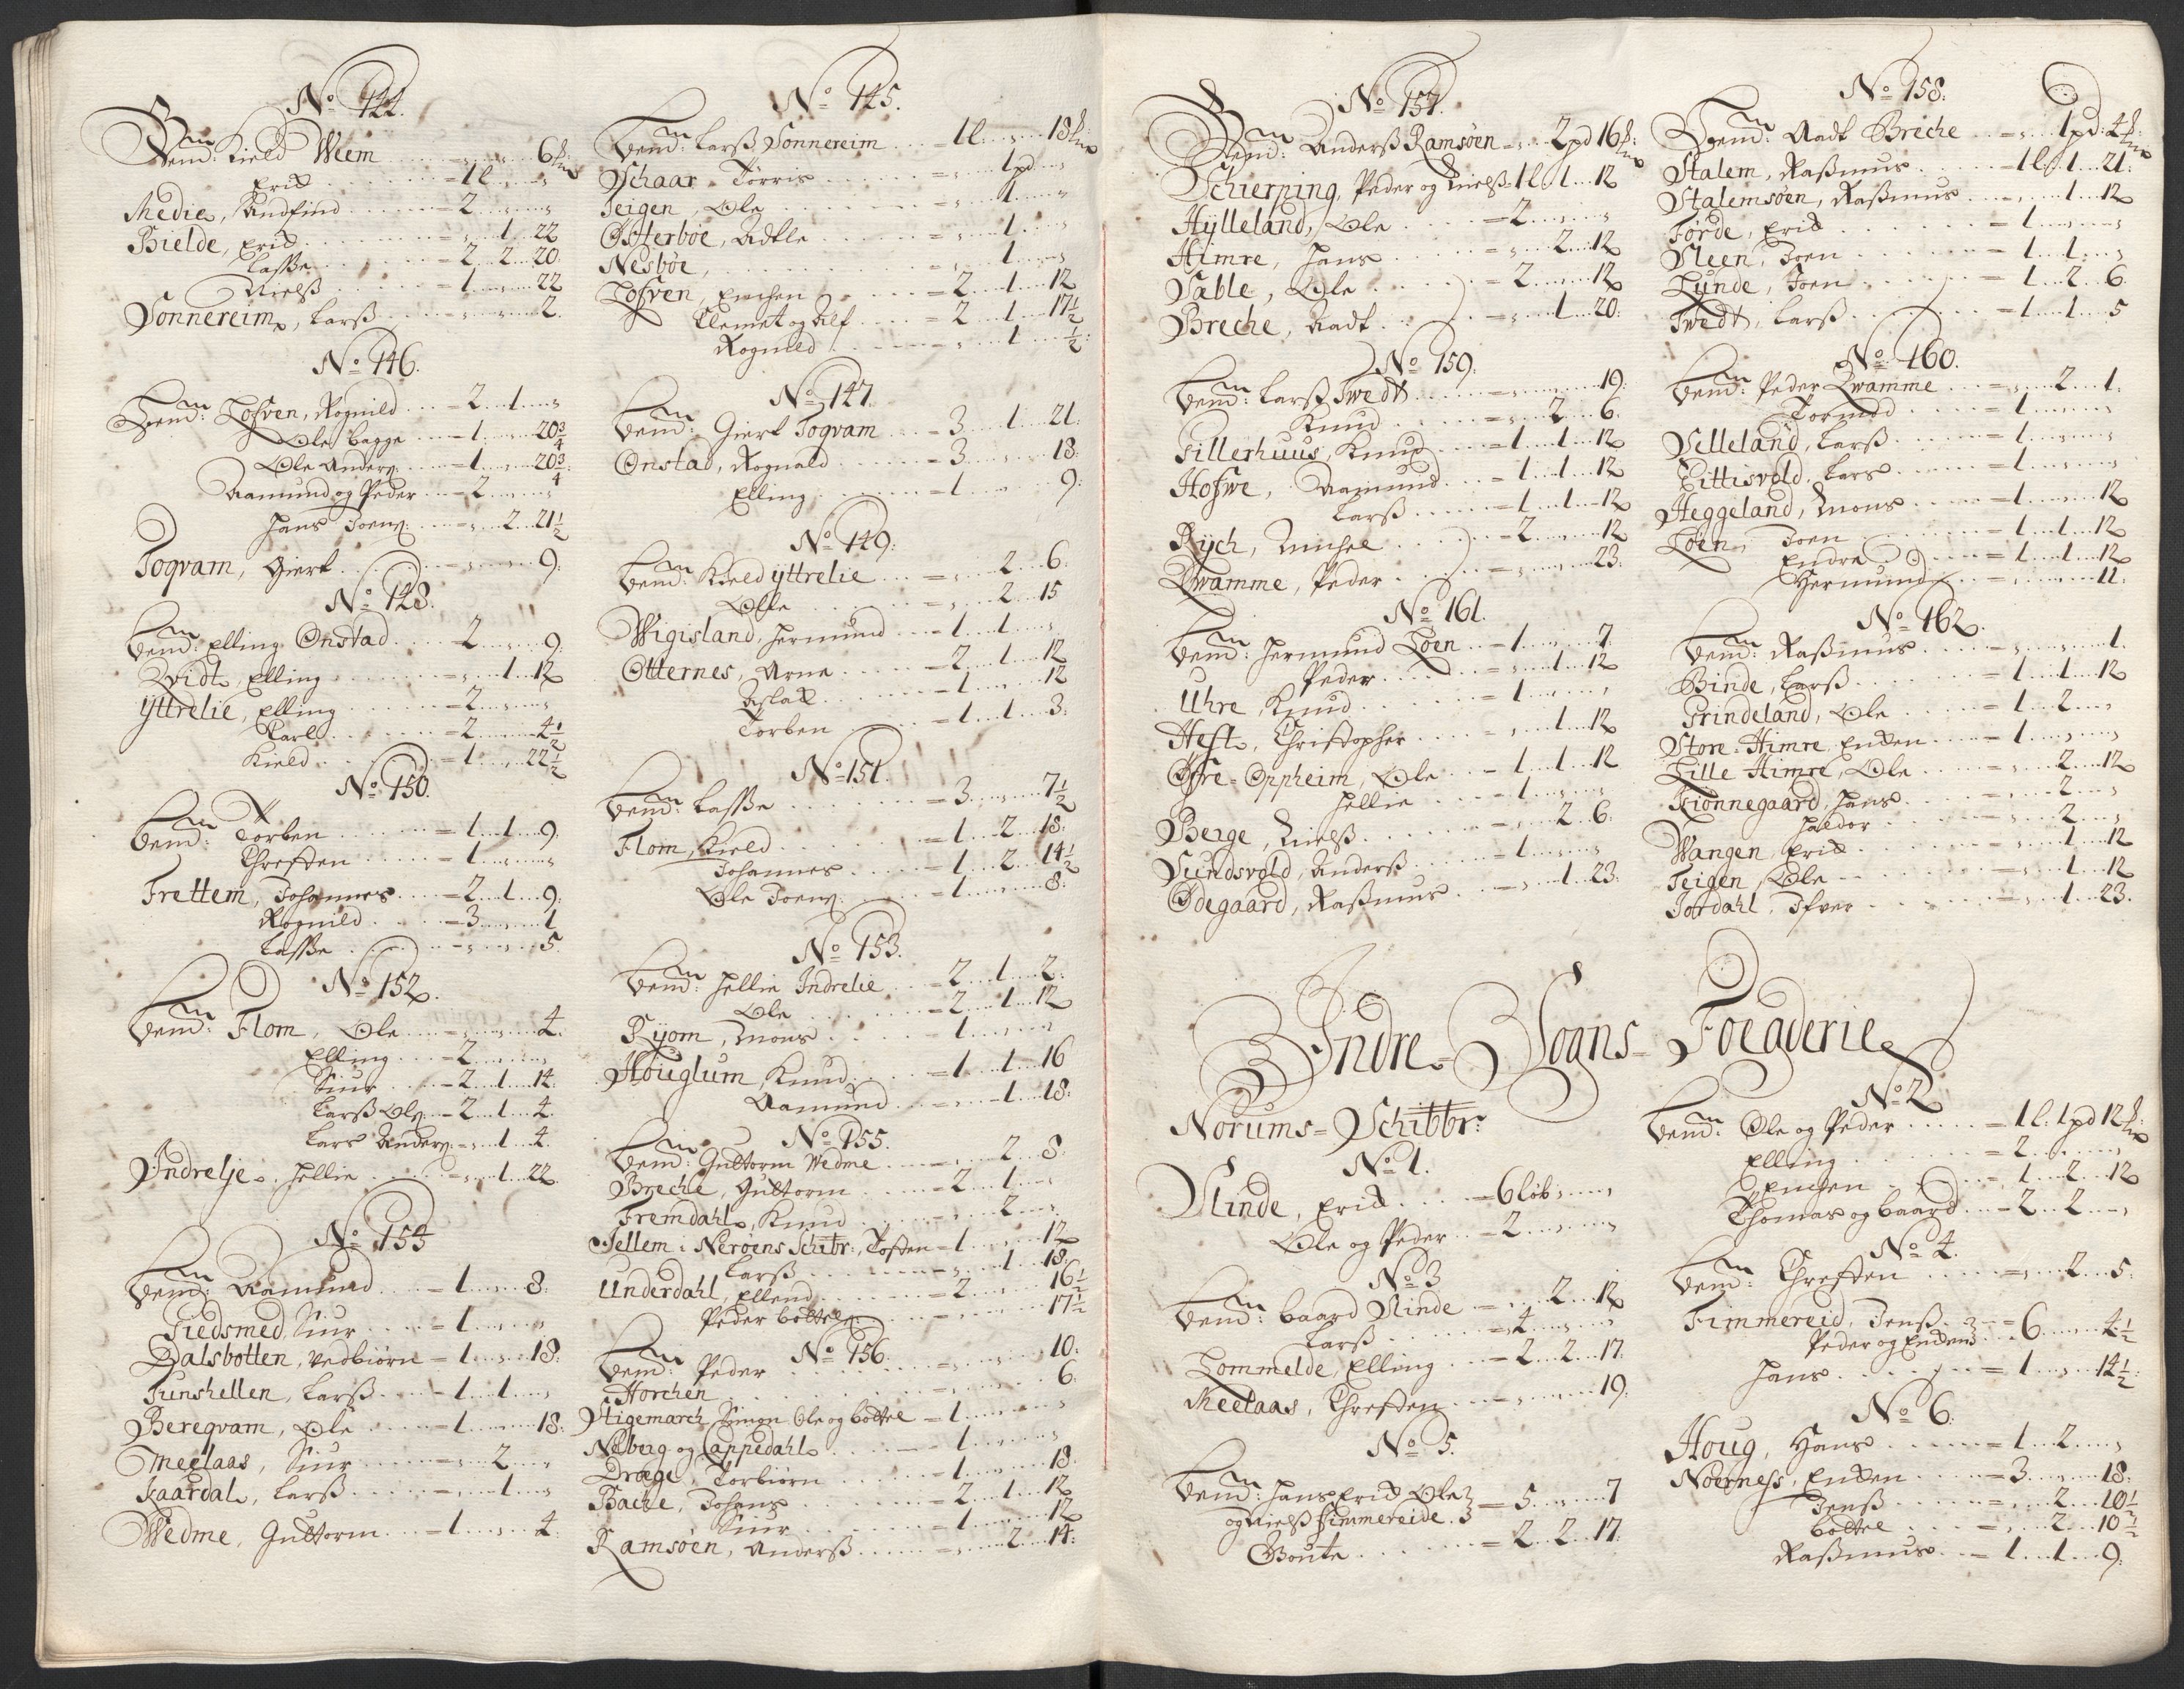 No 144.
Bemd: Kield Wiem - " " 6 ℔
Erik - 1 l " "
Medie, Sandfind - 2 " "
Bielde, Erik - " 1 22
Lasse - 2 2 20
Nielß - 1 " 22
Sonnereim, Larß - " " 2
No 146.
Bemd: Lofven, Rognild - 2 1 "
Ole Bagge - 1 " 20 3/4
Ole Anderß - 1 " 20 3/4
Aamund og Peder - 2 " "
Hans Joenß: - " 2 21 1/2
Togvam, Giert - " " 9:
No 148.
Bemd: Elling Onstad - 2 " 9:
Qvidt, Elling - " 1 12
Yttrelie, Elling - 2 " "
Carl - 2 " 4 1/2
Kield - 1 " 22 1/2
No 150.
Bemd: Torben - 1 1 9:
Christen - 1 " "
Frettem, Johannes - 2 1 9:
Rognild - 3 " 1
Lasse - " " 5.
No 152.
Bemd: Flom, Ole - " " 4.
Elling - 2 " "
Siur - 2 1 14
Larß Olß - 2 1 4.
Lars Anderß - " 1 4.
Indrelje, Hellie - " 1 22
No 154
Bemd: Aamund - 1 " 8:
Tiedsmed, Siur - 1 " "
Dalsbotten, Vedbiørn - 1 " 18:
Tunshellen, Larß - 1 1 "
Bereqvam, Ole - 1 " 18:
Meelaas, Siur - " 2 "
Kaardal, Larß - " 1 "
Wedme, Gultorm - 1 " 4
No 145.
Bemd: Larß Sonnereim - 1 l " 18 ℔
Schaar, Torris - " 1 pd "
Teigen, Ole - " 1 "
Østerbøe, Adtle - " 1 "
Nesbøe, - " 1 "
Lofven, Enchen - 2 1 12
Clemet og Alf - 2 1 17 1/2
Rognild - " 1 1/2
No 147.
Bemd: Giert Togvam - 3 1 21:
Onstad, Rognald - 3 " 18:
Elling - 1 " 9:
No 149:
Bemd: Kield Yttrelie - " 2 6:
Olle - " 2 15
Wigisland, Hermund - 1 1 "
Otternes, Arne - 2 1 12
Aslak - 1 " 12
Torben - 1 1 3:
No 151.
Bemd: Lasse - 3 " 7 1/2
Flom, Kield - 1 2 18:
Johannes - 1 2 14 1/2
Ole Joenß - 1 " 8:
No 153.
Bemd: Hellie Indrelie - 2 1 2:
Ole - 2 1 12
Ryom, Mons - 1 " "
Houglum, Knud - 1 1 16
Aamund - " 1 18:
No 155.
Bemd: Gultorm Wedme - " 2 8:
Breche, Gultorm - 2 1 "
Fremdahl, Knud - " 2 "
Jellem i Nerøens Schibr:, Tosten - 1 " 12
Larß - " 1 18:
Underdahl, Ellend - 2 " 16 1/2
Peder Bottelß - " " 17 1/2
No 156
Bemd: Peder - " " 10:
Horchen - " " 6:
Stigemarch, Simon Ole og Bottel - 1 " "
Neberg og Cappedahl - 1 " "
Drege, Torbiørn - 1 " 18.
Bache, Johans - 2 1 12
Siur - 1 " 12
Ramsøen, Anderß - " 2 14:
No 157.
Bemd: Anderß Ramsøen - " 2 pd 16 ℔:
Schierping, Peder og Nielß - 1 l 1 12
Hylleland, Ole - 2 " "
Himre, Hans - " 2 12
Sable, Ole - 2 " 12
Breche, Aadt - " 1 20:
No 159.
Bemd: Larß Twedt - " " 19:
Knud - " 2 6.
Fillerhuus, Knud - 1 1 12
Hofwe, Aamund - 1 1 12
Larß - 1 1 12
Rych, Michel - 2 " 12
Qwamme, Peder - " " 23:
No 161.
Bemd: Hermund Løen - 1 " 7.
Peder - " 1 12
Uhre, Knud - 1 " "
Heft, Christopher - " 1 12
Øfre-Oppheim, Ole - 1 1 12
Hellie - 1 " "
Berge, Nielß - " 2 6:
Sundsvold, Anderß - 1 " "
Ødegaard, Raßmus - " 1 23:
No 158.
Bemd: Aadt Breche - " 1 pd: 4 ℔:
Stalem, Raßmus - 1 l 1 21:
Stalemsøen, Raßmus - " 1 12
Førde, Erik - 1 " "
Steen, Joen - 1 1 "
Lunde, Joen - 1 2 6.
Twedt, Larß - 1 1 5
No 160.
Bemd: Peder Qwamme - " 2 1:
Tormod - 1 " "
Selleland, Larß - 1 " "
Eittisvold, Lars - 1 " "
Heggeland, Mons - 1 " 12
Løen, Joen - 1 1 12
Endre - 1 1 12
Hermund - " " 11:
No 162.
Bemd: Raßmus - " " 1.
Binde, Larß - 1 1 12
Grindeland, Ole - 1 2 "
Store-Himre, Enken - 1 " "
Lille Himre, Ole - " 2 12
Kionnegaard, Hans - " 2 "
Haldor - " 2 "
Wangen, Erik - " 1 12
Teigen, Ole - " 1 12
Jordahl, Ifver - " 1 23.
Indre-Sogns-Foegderie
Norums-Schibbr:
No 1.
Slinde, Erik - 6 løb " "
Ole og Peder - 2 " "
No 3
Bemd: Baard Slinde - " 2 12
Larß - 4 " "
Lommelde, Elling - 2 2 17.
Meelaas, Christen - " " 19:
No 5.
Bemd: Hans, Erik, Ole
og Nielß Fimmereide - 5 " 7
Boute - 2 2 17:
No 2
Bemd: Ole og Peder - 1 l: 1 pd 12 ℔:
Elling - 2 " "
Enchen - 1 2 12
Thomas og Baard - 2 2 "
No 4.
Bemd: Christen - " 2 5:
Fimmereid, Jenß
Peder og Enken - 6 " 4 1/2
Hans - 1 " 14 1/2
No 6.
Houg, Hans - 1 2 "
Noerness, Enken - 3 " 18:
Jenß - " 2 10 1/2
Bottel - " 2 10 1/2
Raßmus - 1 1 9: